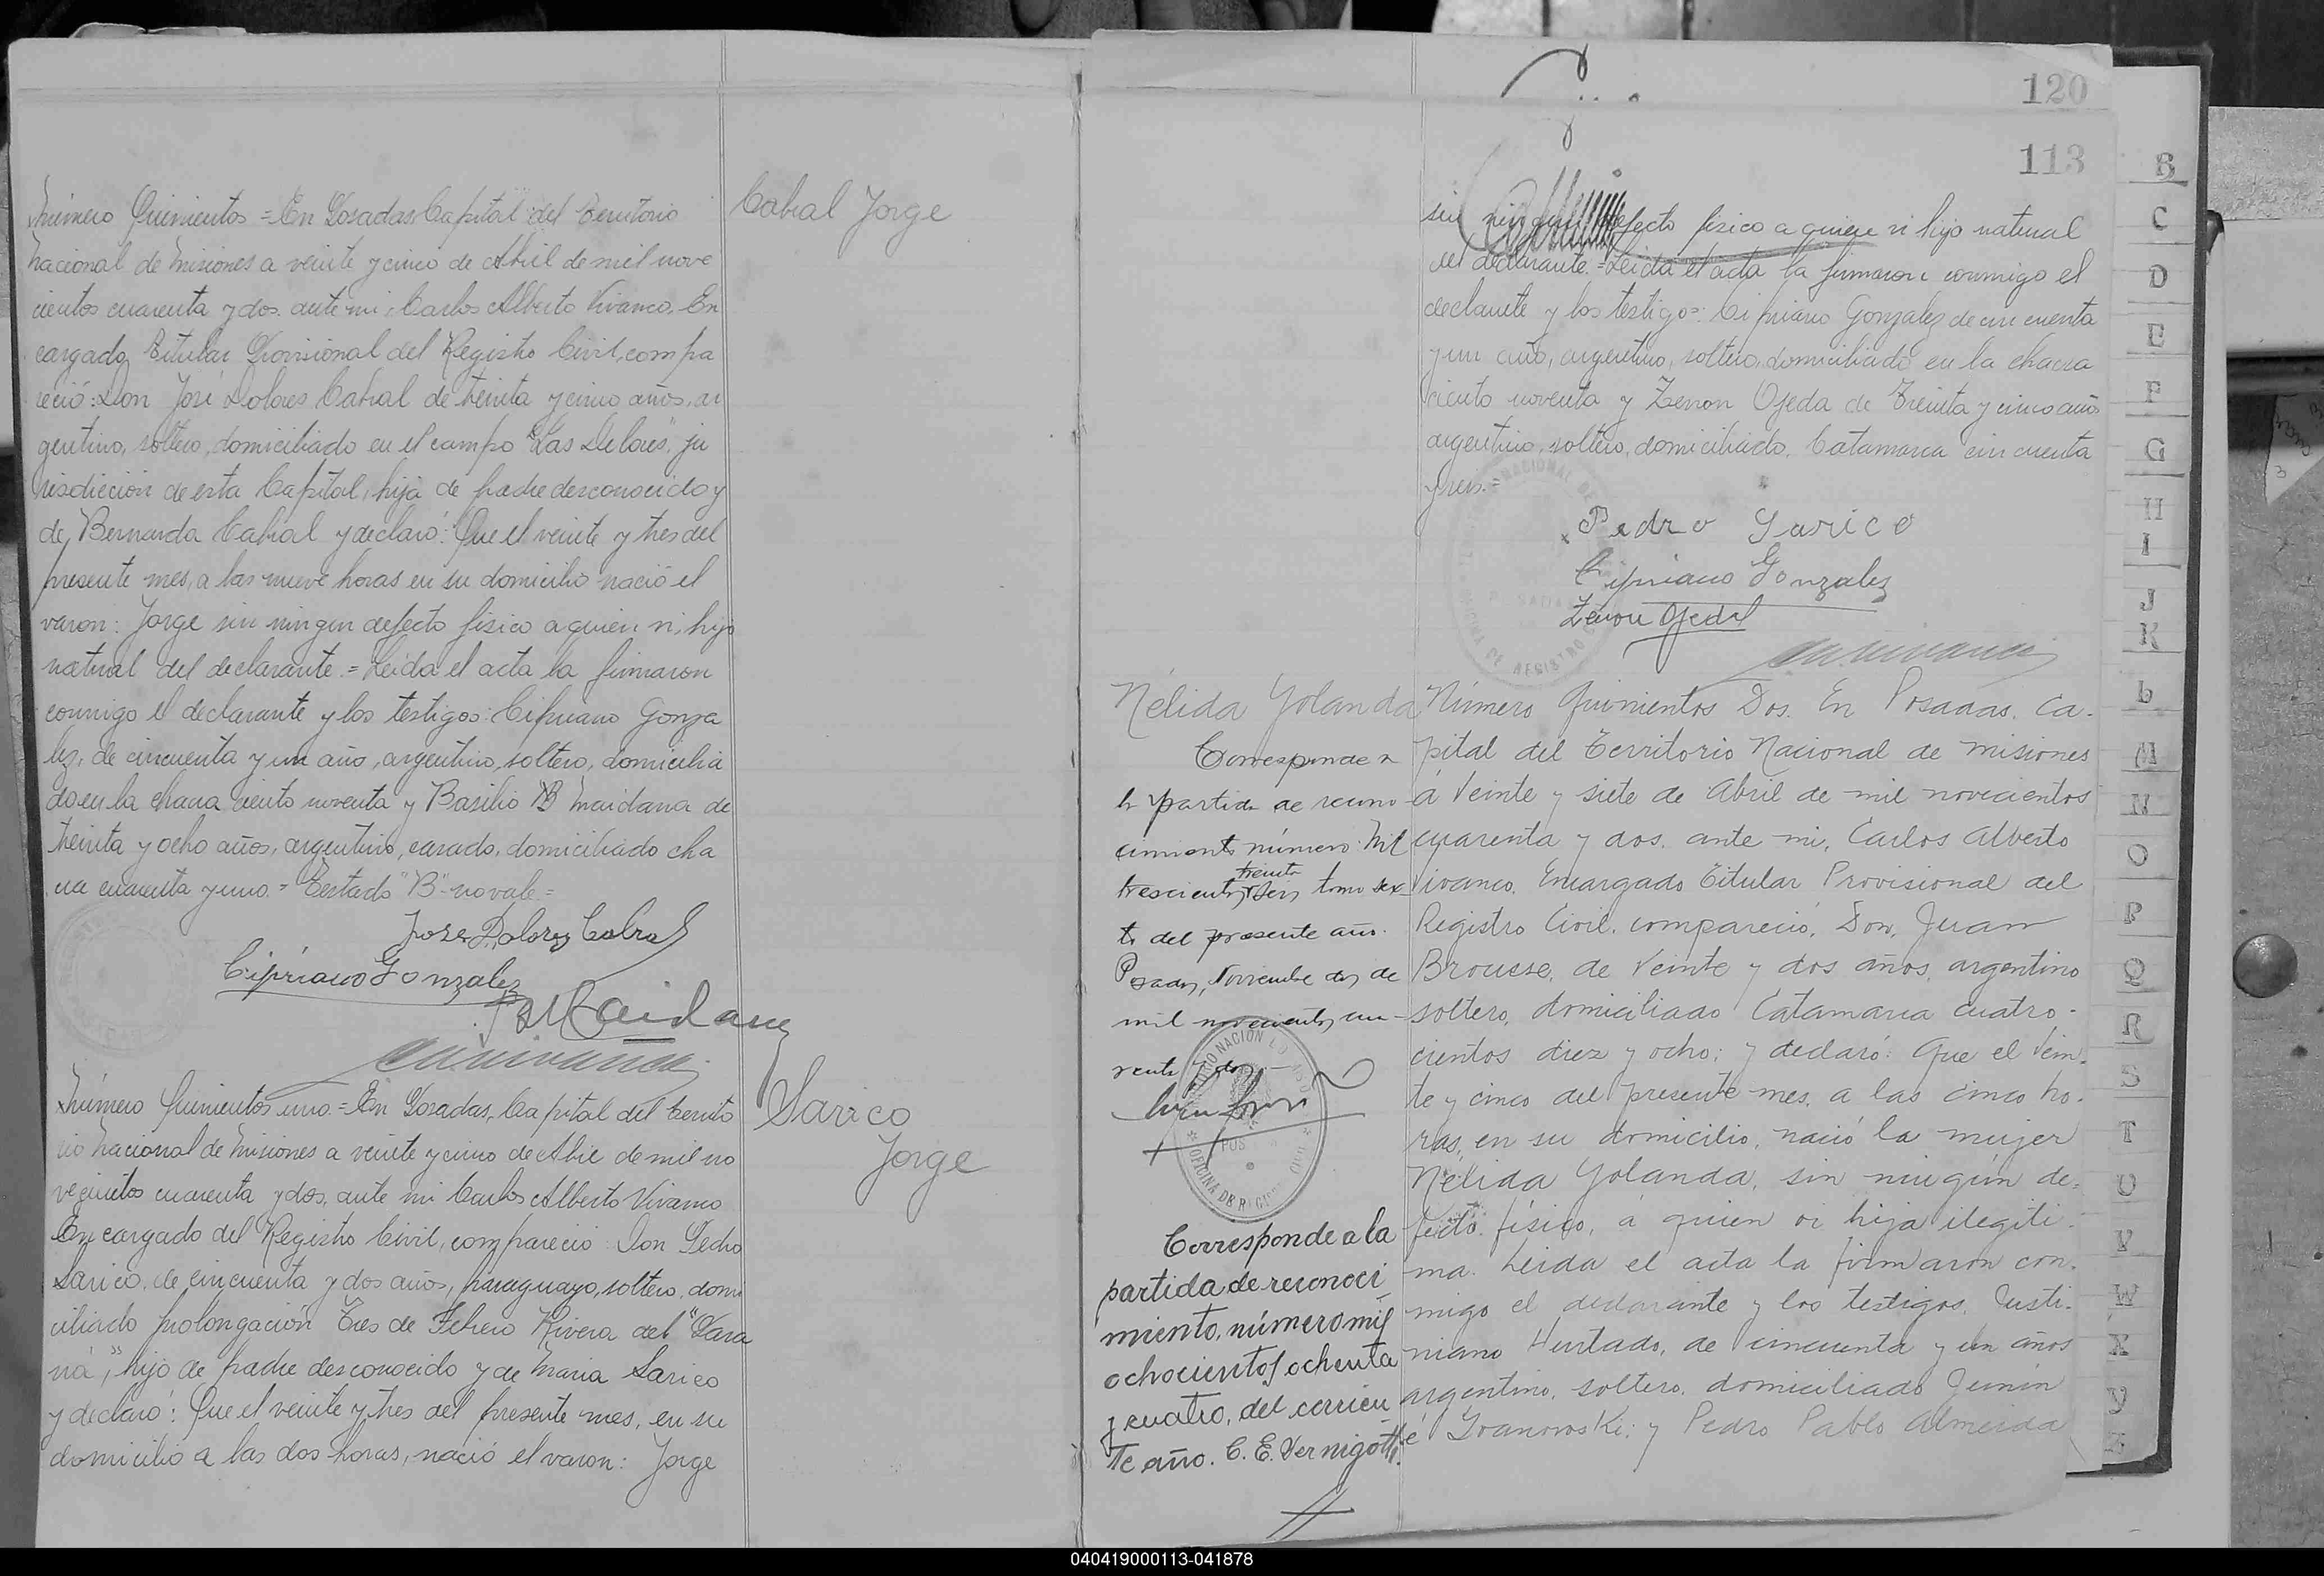 Número Quinientos = En Posadas Capital del Territorio
Nacional de Misiones a veinte y cinco de Abril de mil nove
cientos cuarenta y dos. ante mi, Carlos Alberto Vivanco, En
cargado Titular Provisional del Registro Civil, compa
reció: Don José Dolores Cabral de treinta y cinco años, ar
gentino, soltero, domiciliado en el campo "Las Dolores" ju
risdicción de esta Capital, hijo de padre desconocido y
de Bernarda Cabral y declaró: Que el veinte y tres del
presente mes, a las nueve horas en su domicilio nació el
varon: Jorge sin ningun defecto fisico a quien vi, hijo
natural del declarante. = Leida el acta la firmaron
conmigo el declarante y los testigos: Cipriano Gonza
lez, de cincuenta y un año, argentino, soltero, domicilia
do en la chacra ciento noventa y Basilio B Maidana de
treinta y ocho años, argentino, casado, domiciliado cha
cra cuarenta y uno. = Testado "B" - no vale =
Jose Dolores Cabral
Cipriano Gonzalez
B Maidana
Cabral Jorge
Número Quinientos uno. = En Posadas, Capital del Territo
rio Nacional de Misiones a veinte y cinco de Abril de mil no
vecientos cuarenta y dos, ante mi Carlos Alberto Vivanco
Encargado del Registro Civil, compareció: Don Pedro
Sarico, de cincuenta y dos años, paraguayo, soltero, domi
ciliado prolongación Tres de Febrero Rivera del "Para
ná", hijo de padre desconocido y de Maria Sarico
y declaró: Que el veinte y tres del presente mes, en su
domicilio a las dos horas, nació el varon: Jorge
Sarico
Jorge
120
113
sin ningun defecto fisico a quien vi hijo natural
del declarante. = Leida el acta la firmaron conmigo el
declarante y los testigos: Cipriano Gonzalez de cincuenta
y un año, argentino, soltero, domiciliado en la chacra
ciento noventa y Zenon Ojeda de Treinta y cinco años
argentino, soltero, domiciliado, Catamarca cincuenta
y seis. =
Pedro Sarico
Cipriano Gonzalez
Zenon Ojeda
Nélida Yolanda
Corresponde a
la partida de recono
cimiento número: Mil
treinta
trescientos y seis tomo sex
to del presente año.
Posadas, Noviembre dos de
mil novecientos cua
renta y dos
OFICINA DE REGISTRO CIVIL
Corresponde a la
partida de reconoci
miento, número mil
ochocientos ochenta
y cuatro, del corrien
te año. C. E. Vernigotti.
Número Quinientos Dos. En Posadas. Ca-
pital del Territorio Nacional de Misiones
á Veinte y siete de Abril de mil novecientos
cuarenta y dos. ante mi, Carlos Alberto
Vivanco. Encargado Titular Provisional del
Registro Civil. compareció, Don, Juan
Brousse, de Veinte y dos años, argentino
soltero, domiciliado Catamarca cuatro-
cientos diez y ocho; y declaró: Que el Vein-
te y cinco del presente mes. a las cinco ho-
ras, en su domicilio, nació la mujer
Nélida Yolanda, sin ningún de-
fecto físico, á quien vi hija ilegiti-
ma. Leida el acta la firmaron con-
migo el declarante y los testigos. Justi-
niano Hurtado, de Cincuenta y un años
argentino, soltero, domiciliado Junin
é Ivanowski; y Pedro Pablo Almeida
B
C
D
E
F
G
H
I
J
K
L
M
N
O
P
Q
R
S
T
U
V
W
X
Y
Z
040419000113-041878